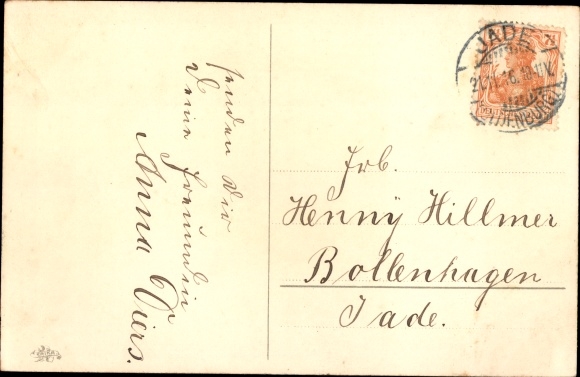 senden Dir
Deine Freundin
Anna Diers.
JADE
OLDENBURG
Frl.
Henny Hillmer
Bollenhagen
Jade.